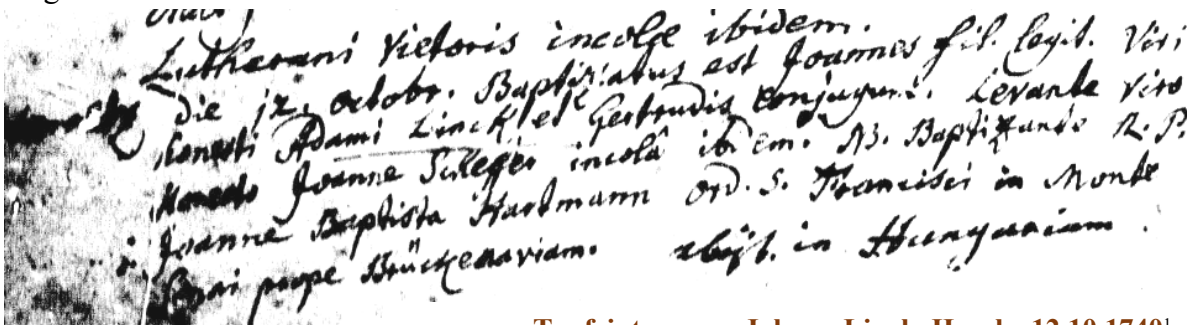 Lutherani Vietoris incolæ ibidem.
die 12. octobr. Baptizatus est Joannes fil. legit. Viri
honesti Adami Linck et Gertrudis conjugum. Levante Viro
Honesto Joanne incolâ ibidem. NB. Baptizante R. P.
Joanne Baptista Hartmann ord. S. Francisci in Monte
prope Brückenaviam. abijt. in Hungariam.